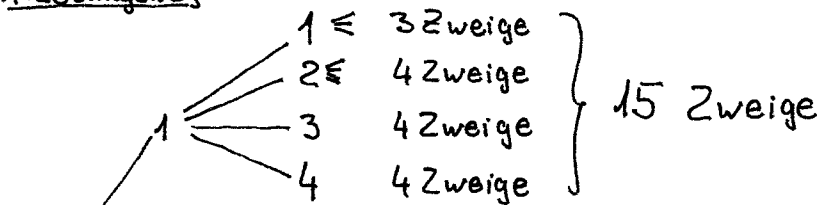 1 ⋲ 3 Zweige
2 ⋲ 4 Zweige
1 3 4 Zweige } 15 Zweige
4 4 Zweige